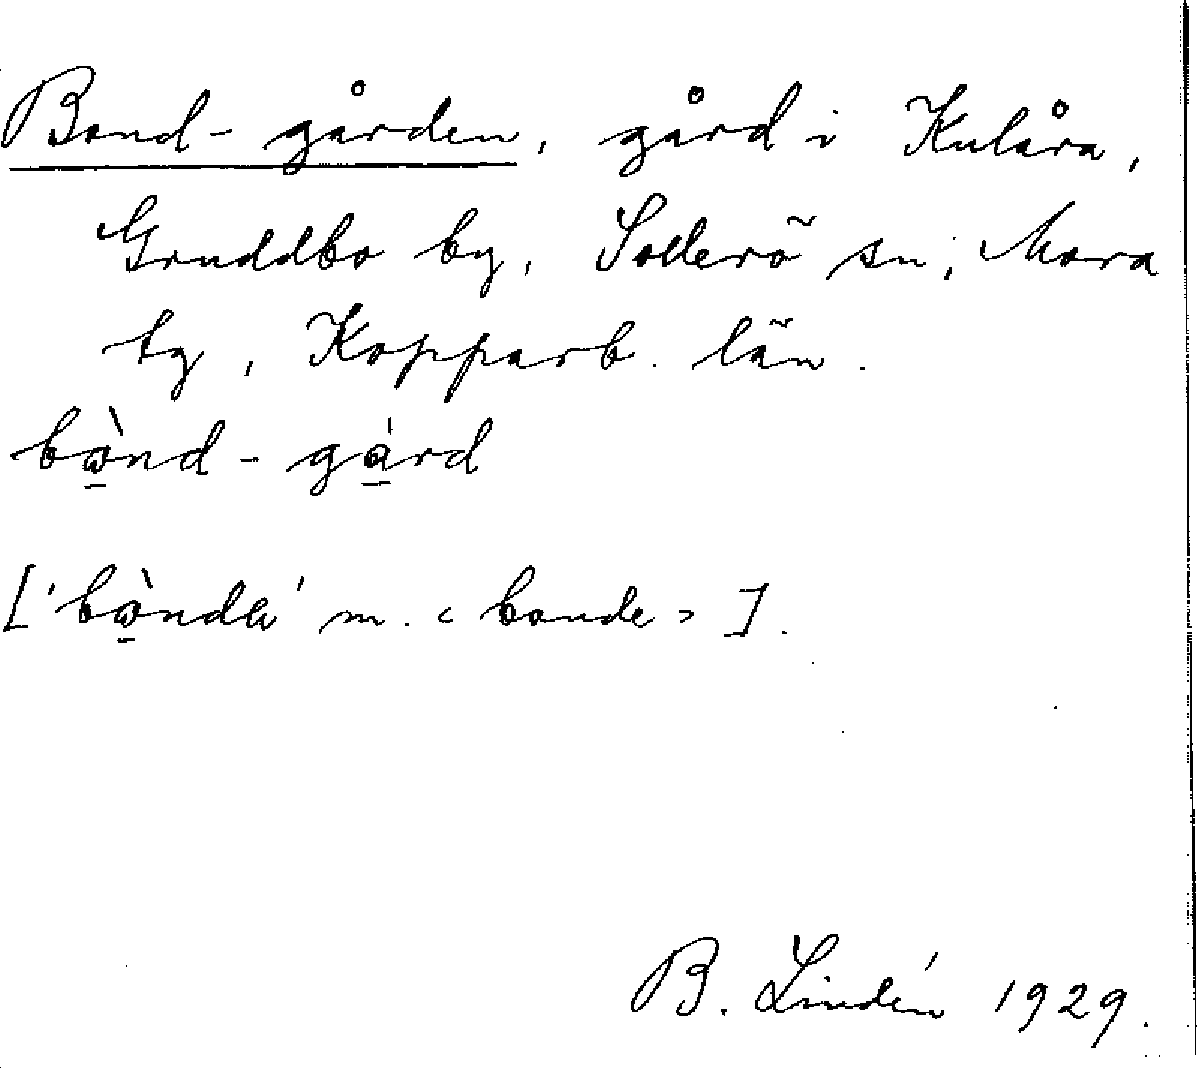 Bond-gården, gård i Kulåra,
Gruddbo by, Sollerö sn, Mora
tg, Kopparb. län.
bò̱nd-gá̱rd
['bò̱nda' m. < bonde > ].
B. Lindén 1929.